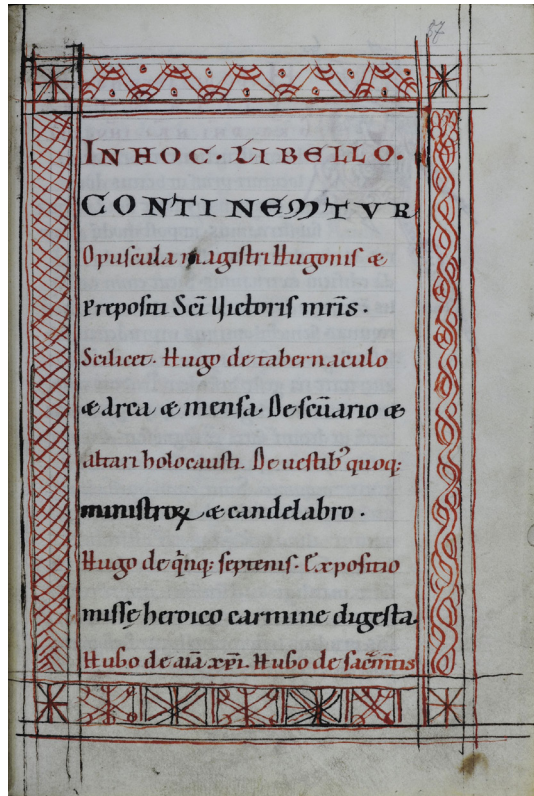 57
IN HOC · LIBELLO ·
CONTINENTVR
Opuscula magistri Hugonis &
Prepositi Sc̄i Victoris mr̄is ·
Scilicet · Hugo de tabernaculo
& Arca & mensa · De scūario &
altari holocausti · De uestib; quoq;
ministroꝝ & candelabro ·
Hugo de q̄nq; septenis · Expositio
missę heroico carmine digesta
Hugo de aīa xp̄i · Hugo de sacm̄tis